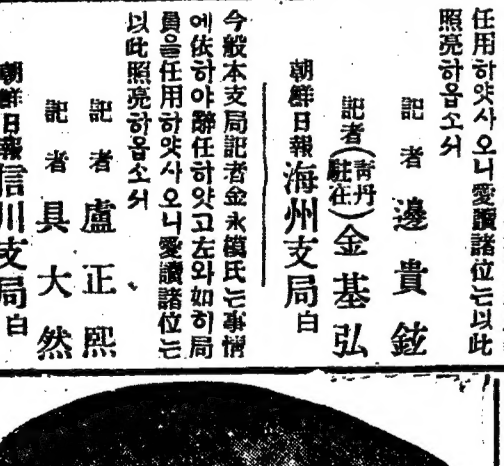 任用하얏사오니愛讀諸位는以此
照亮하옵소서
記者 邊貴鉉
記者(靑丹駐在)金基弘
朝鮮日報海州支局白
今般本支局記者金永模氏는事情
에依하야辭任하얏고左와如히局
員을任用하얏사오니愛讀諸位는
以此照亮하옵소서
記者 盧正熙
記者 具大然
朝鮮日報信川支局白